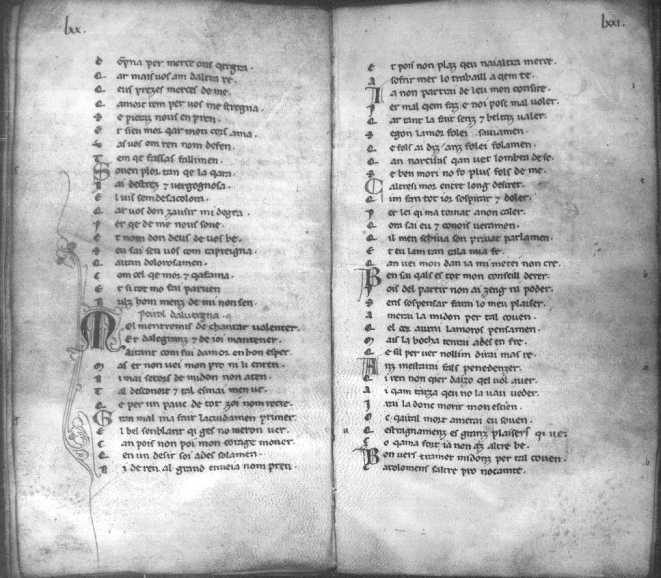 lxx.
D opna per merce ous qergra.
E ar mais vos am daltra re.
E eus prezes merces de me.
E amors tem per vos me stregna.
E pietatz nous en pren.
E t sieu mor qar mon cors ama.
A vos om ren nom defen.
T em qe fassas fallimen.
S oven plor tan qe la qara.
N ai destreg 7 vergognosa.
E l vis sem desacolora.
C ar vos don jausir mi degra.
P er qe de me nous sove.
E t nom don deus de vos be.
S eu sai seu vos com capteigna.
E aitan dolorosamen.
C om cel qe mor 7 qaflama.
E t si tot mo fai parven
N ulz hom menz de mi non sen.
Peirol dalvergna.
M ol mentremis de chantar volenter.
Er dalegranz 7 de joi mantener.
Aitant com fui damor en bon esper.
M as er non vei mon pro ni li enten.
N i mai secors de midon non aten.
T al desconort 7 tal esmai men ve.
C e per un pauc de tot joi nom recre.
G ran mal ma fait lacuidamen primer.
E l bel senblant qi ges no meron ver.
C an pois non poi mon corage mover.
E en un desir soi ades solamen.
N i de ren al grand enveia nom pren.
lxxi.
E t pois non plaz qeu naia altra merce.
A sofrir mer lo trabaill a qem te.
I a non partrai de leu mon consire.
P er mal qem faz e noi pos mal voler.
C ar tant la fait senz 7 beltaz valer.
S egon lamor folei saviamen.
E e fols ai diz anz folei folamen.
C an narcisus qan vet lombra de se.
S e ben mori no fo plus fols de me.
C altresi mor entre long desirer.
E im fan tot jor sospirar 7 doler.
P er lei qi ma tornat anon caler.
E ora sai eu 7 conois veramen.
E il men schiva son privat parlamen.
E t eu lam tan cala mia fe.
C an vei mon dan ia mi metei non cre.
B en sai qals es tot mon conseill derer.
P ois del partir non ai zeng ni poder.
S ens sospensar farai lo meu plaiser.
A merai la midon per tal coven.
E el cor aurai lamoros pensamen.
M ais la bocha tenrai ades en fre.
E e sil per ver nollim dirai mas re.
A nz mestarai fals penedenzer.
E i ren non qer daizo qel vol aver.
A i qam tarza qeu no la vau veder.
I rai la donc morir mon escien.
O c qaital mort amerai eu soven.
E estragnamenz es granz plaisers qi vei
C o qama fort ia non az altre be.
B on vers tramet midonz per tal coven.